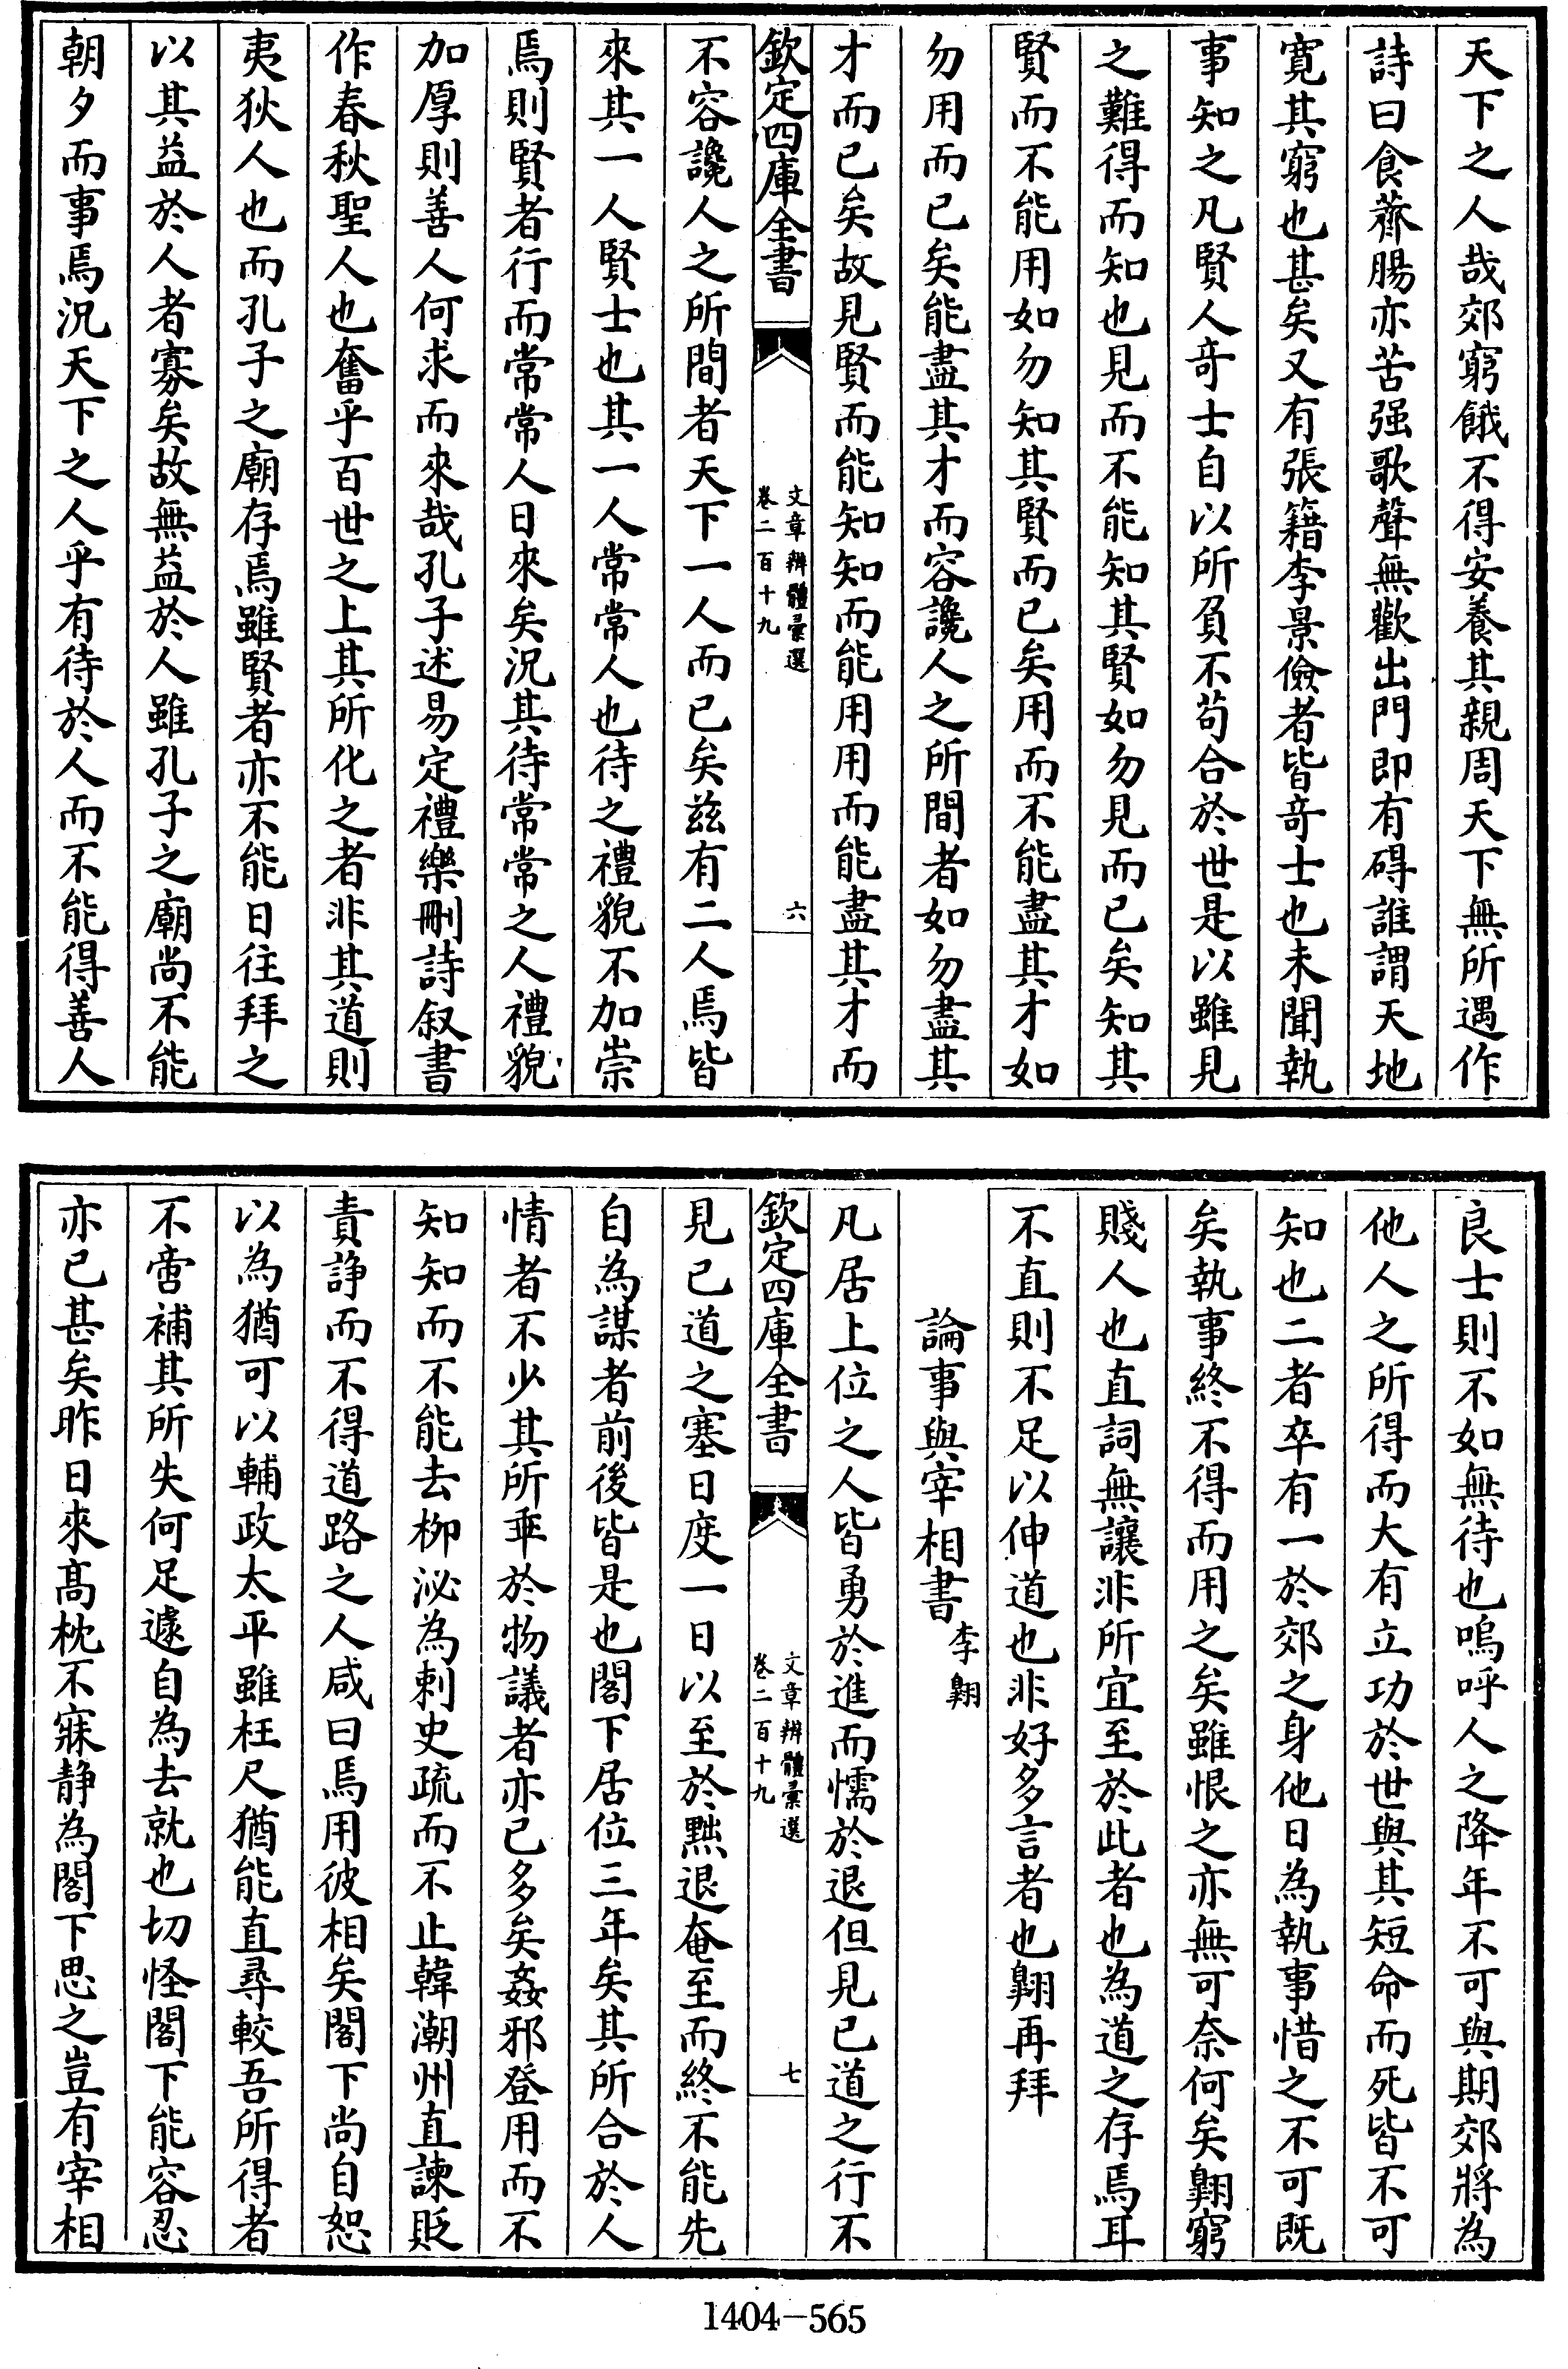 天下之人哉郊窮餓不得安養其親周天下無所遇作
詩曰食薺腸亦苦强歌聲無歡出門即有碍誰謂天地
寛其窮也甚矣又有張籍李景儉者皆竒士也未聞執
事知之凡賢人竒士自以所負不苟合於世是以雖見
之難得而知也見而不能知其賢如勿見而已矣知其
賢而不能用如勿知其賢而已矣用而不能盡其才如
勿用而已矣能盡其才而容讒人之所間者如勿盡其
才而已矣故見賢而能知知而能用用而能盡其才而
欽定四庫全書
文章辨體彙選
卷二百十九
六
不容讒人之所間者天下一人而已矣兹有二人焉皆
來其一人賢士也其一人常常人也待之禮貌不加崇
焉則賢者行而常常人日來矣況其待常常之人禮貌
加厚則善人何求而來哉孔子述易定禮樂刪詩叙書
作春秋聖人也奮乎百世之上其所化之者非其道則
夷狄人也而孔子之廟存焉雖賢者亦不能日往拜之
以其益於人者寡矣故無益於人雖孔子之廟尚不能
朝夕而事焉況天下之人乎有待於人而不能得善人
良士則不如無待也嗚呼人之降年不可與期郊將為
他人之所得而大有立功於世與其短命而死皆不可
知也二者卒有一於郊之身他日為執事惜之不可既
矣執事終不得而用之矣雖恨之亦無可奈何矣翺窮
賤人也直詞無讓非所宜至於此者也為道之存焉耳
不直則不足以伸道也非好多言者也翺再拜
論事與宰相書李翺
凡居上位之人皆勇於進而懦於退但見已道之行不
欽定四庫全書
文章辨體彙選
卷二百十九
七
見已道之塞日度一日以至於黜退奄至而終不能先
自為謀者前後皆是也閣下居位三年矣其所合於人
情者不少其所乖於物議者亦已多矣姦邪登用而不
知知而不能去柳泌為剌史疏而不止韓潮州直諫貶
責諍而不得道路之人咸曰焉用彼相矣閣下尚自恕
以為猶可以輔政太平雖枉尺猶能直尋較吾所得者
不啻補其所失何足遽自為去就也切怪閣下能容忍
亦已甚矣昨日來髙枕不寐静為閣下思之豈有宰相
1404-565